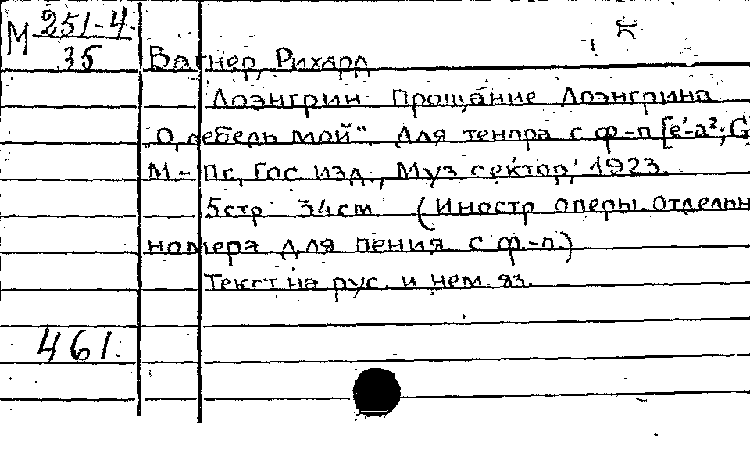 М 251-4
35
Вагнер, Рихард
Лоэнгрин. Прощание Лоэнгрина
"О, лебедь мой". Для тенора с ф-п [e'-a²; G
М-Пг, Гос. изд., Муз. сектор, 1923.
5стр. 34см. (Иностр. оперы. Отдельн
номера для пения с ф-п.)
Текст на рус. и нем. яз.
461.